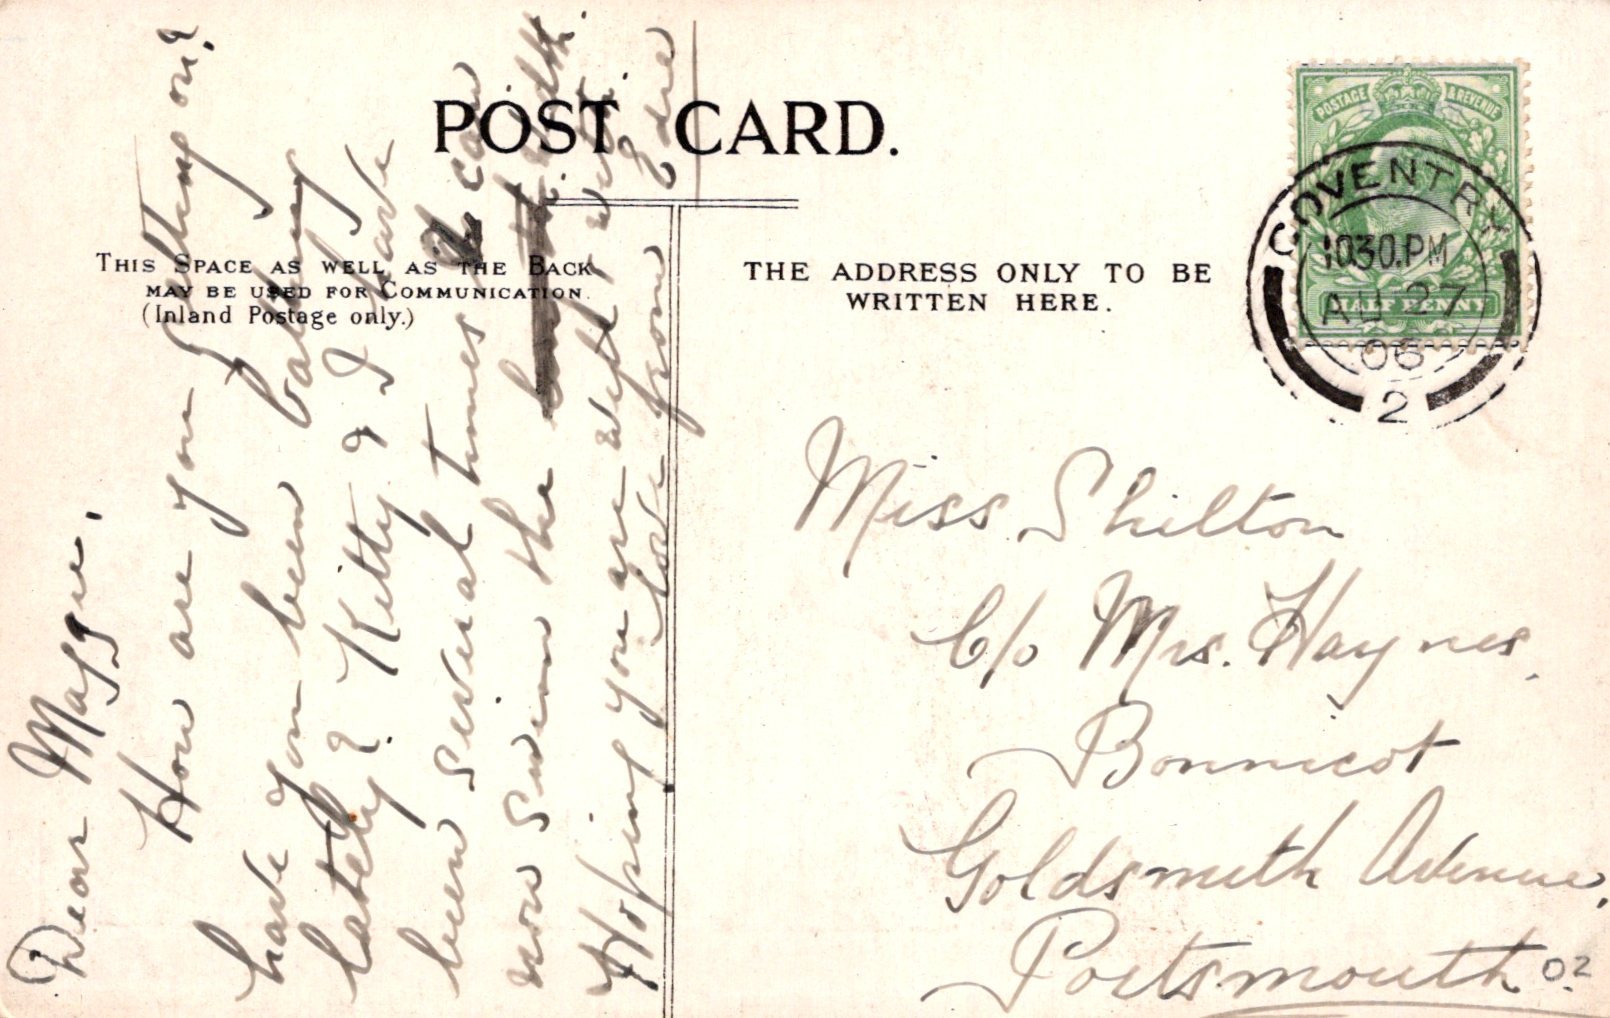 POST CARD.
THIS SPACE AS WELL AS THE BACK
MAY BE USED FOR COMMUNICATION.
(Inland Postage only.)
THE ADDRESS ONLY TO BE
WRITTEN HERE.
POSTAGE & REVENUE
HALF PENNY
COVENTRY
10.30.PM
AU 27
06
2
Dear Maggie.
How are you getting on?
have you been bathing
lately? Kitty & I have
been several times & can
now swim the width.
Hoping you are well, with
love from Edie
Miss. Shilton
C/o Mrs. Haynes,
Bonnicot
Goldsmith Avenue,
Portsmouth.
02